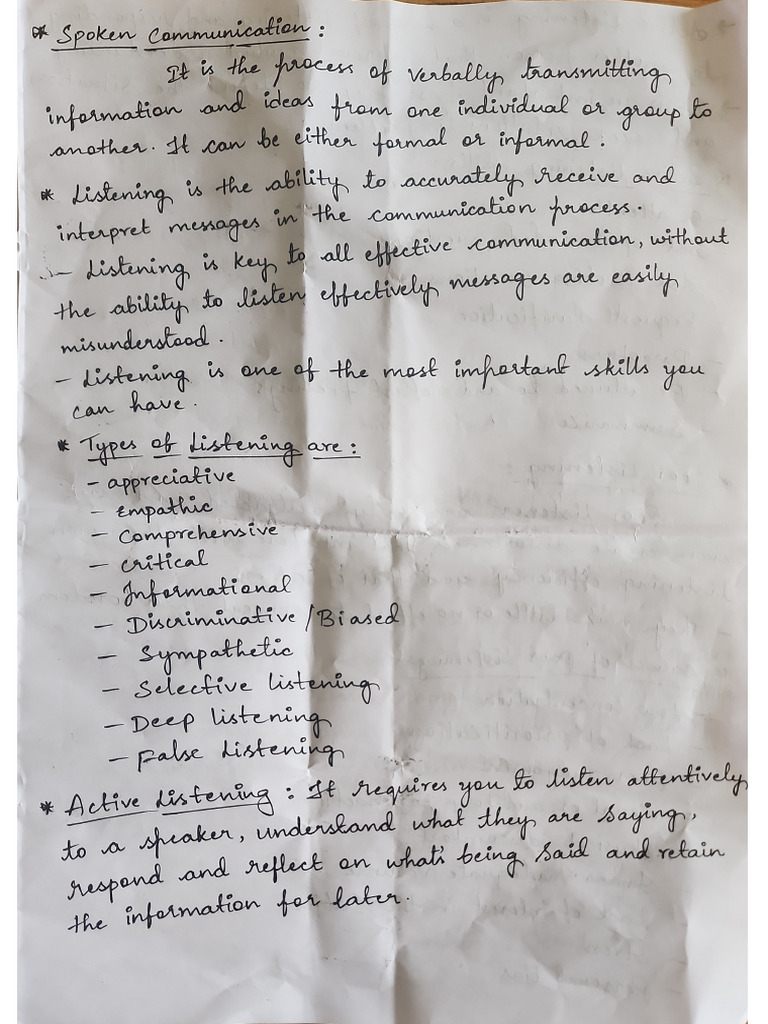 * Spoken Communication :
It is the process of verbally transmitting
information and ideas from one individual or group to
another. It can be either formal or informal.
* Listening is the ability to accurately receive and
interpret messages in the communication process.
- Listening is key to all effective communication, without
the ability to listen effectively messages are easily
misunderstood.
- Listening is one of the most important skills you
can have.
* Types of Listening are :
- appreciative
- Empathic
- Comprehensive
- Critical
- Informational
- Discriminative / Biased
- Sympathetic
- Selective listening
- Deep listening
- False Listening
* Active Listening : It requires you to listen attentively
to a speaker, understand what they are saying,
respond and reflect on what's being said and retain
the information for later.